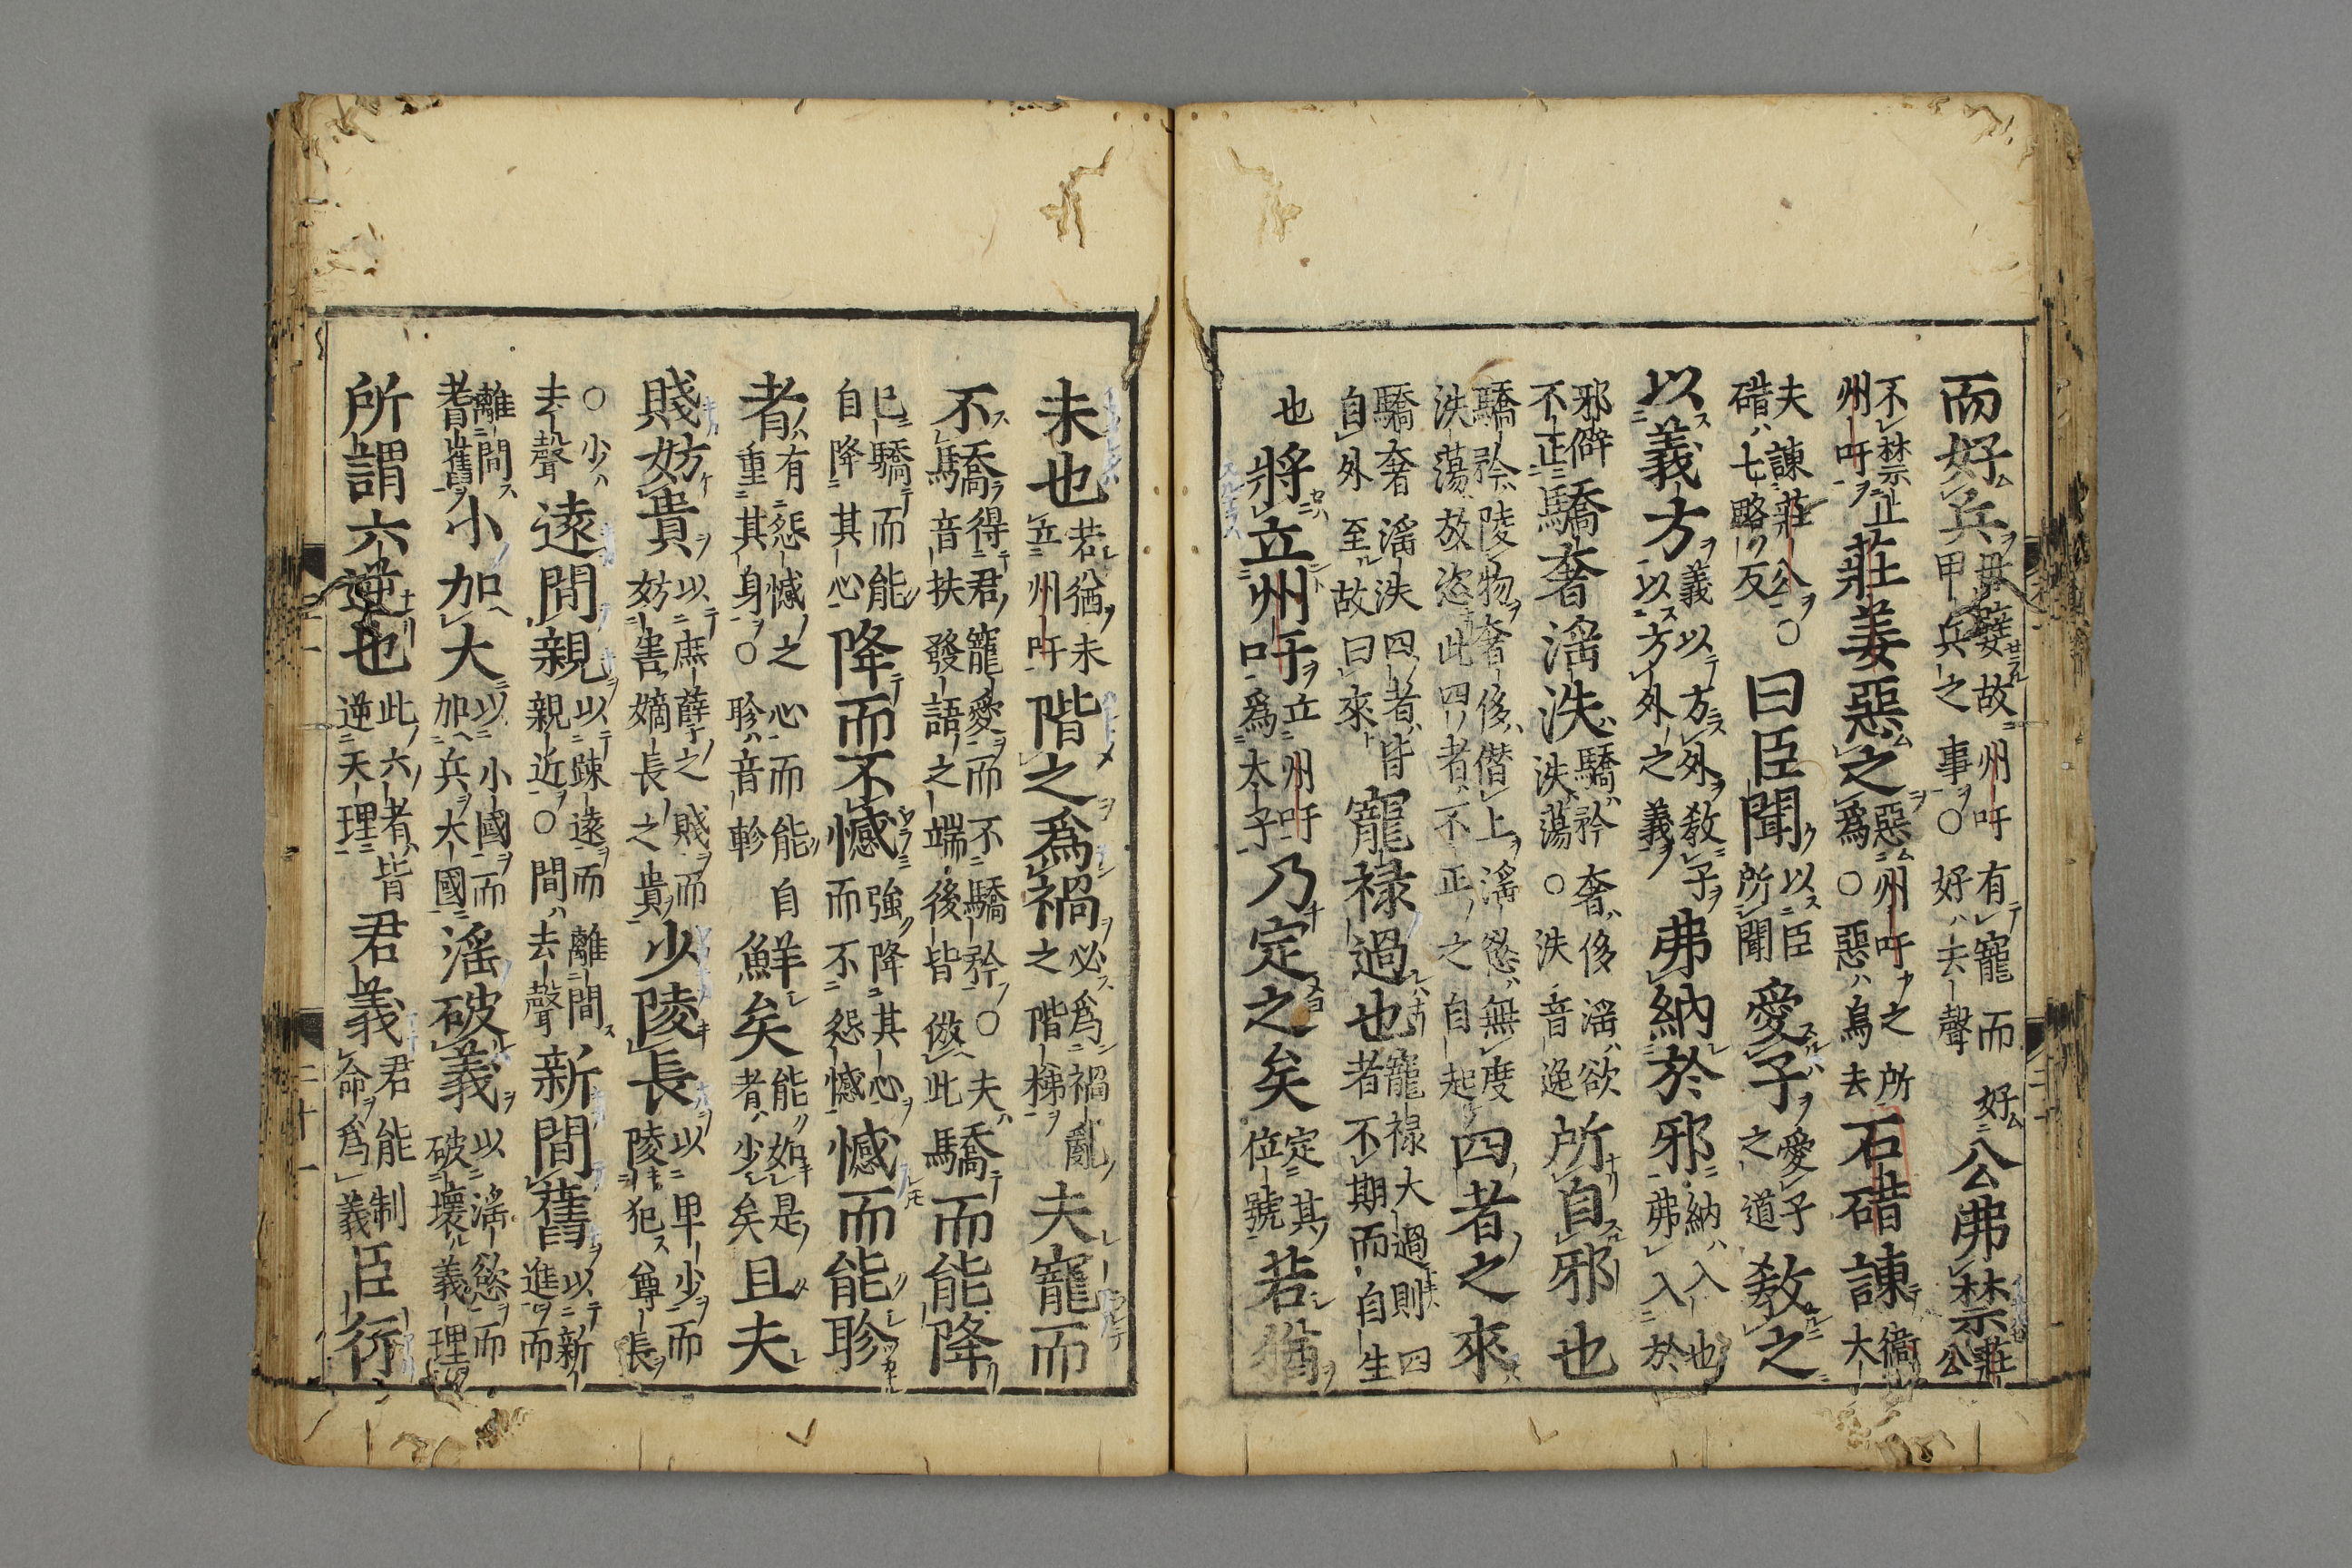 而好兵毋嬖故州吁有寵而好甲兵之事○好ハ去聲公弗禁莊公
不禁止州吁莊姜惡之惡州吁之所爲○惡ハ烏去石碏諫衞大
夫諫莊公○碏ハ七略ノ反曰臣聞以臣所聞愛子愛子之道教之
以義方義以方外教子以方外之義弗納於邪納ハ入也弗入於
邪僻不正驕奢淫泆驕ハ矜奢ハ侈淫ハ欲泆ハ蕩○泆音逸所自邪也
驕矜陵物奢侈僭上淫慾無度泆蕩放恣此四者不正之自起四者之來
驕奢淫泆四者皆自外至故曰來寵祿過也寵祿大過則四者不期而自生
也將立州吁立州吁爲太子乃定之矣定其位號若猶
未也若猶未立州吁階之爲禍必爲禍亂之階梯夫寵而
不驕得君寵愛而不驕矜○夫ハ音扶發語之端後皆倣此驕而能降
已驕而能自降其心降而不憾強降其心而不怨憾憾而能眕
者有怨憾之心而能自重其身○眕ハ音軫鮮矣能如是者少矣且夫
賤妨貴以庶孽之賤而妨害嫡長之貴少陵長以卑少而陵犯尊長
○少ハ去聲遠間親以踈遠而離間親近○間ハ去聲新間舊以新進而
離間耆舊小加大以小國而加兵大國淫破義以淫慾而破壞義理
所謂六逆也此六者皆逆天理君義君能制命爲義臣行
二十一